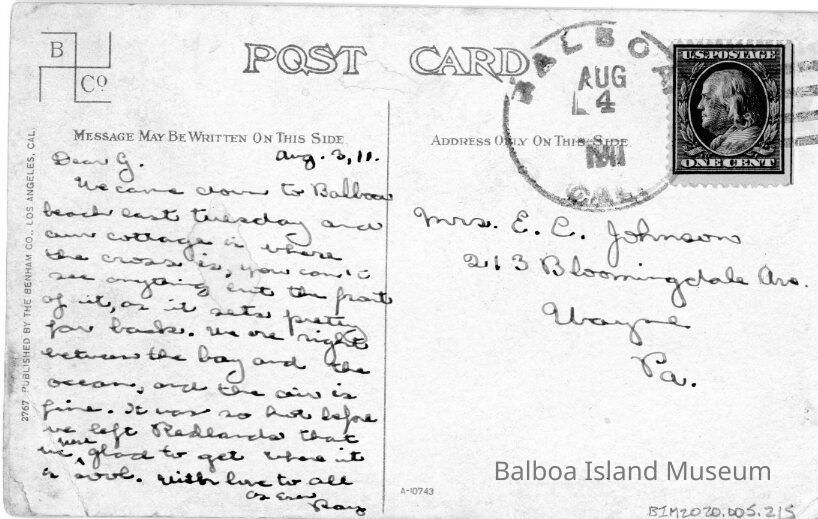 B
Co
POST CARD
MESSAGE MAY BE WRITTEN ON THIS SIDE
ADDRESS ONLY ON THIS SIDE
BALBOA
AUG
4
1911
CAL.
U.S. POSTAGE
ONE CENT
2767 PUBLISHED BY THE BENHAM CO., LOS ANGELES, CAL.
Aug. 3, 11.
Dear G.
We came down to Balboa
beach last tuesday and
our cottage is where
the cross is, you can't
see anything but the front
of it, as it sets pretty
far back. We are right
between the bay and the
ocean, and the air is
fine. It was so hot before
we left Redlands that
we were glad to get where it
is cool. With love to all
as ever
Mrs. E. C. Johnson
213 Bloomingdale Ave.
Wayne
Pa.
A-10743
Balboa Island Museum
BIM2020.005.215